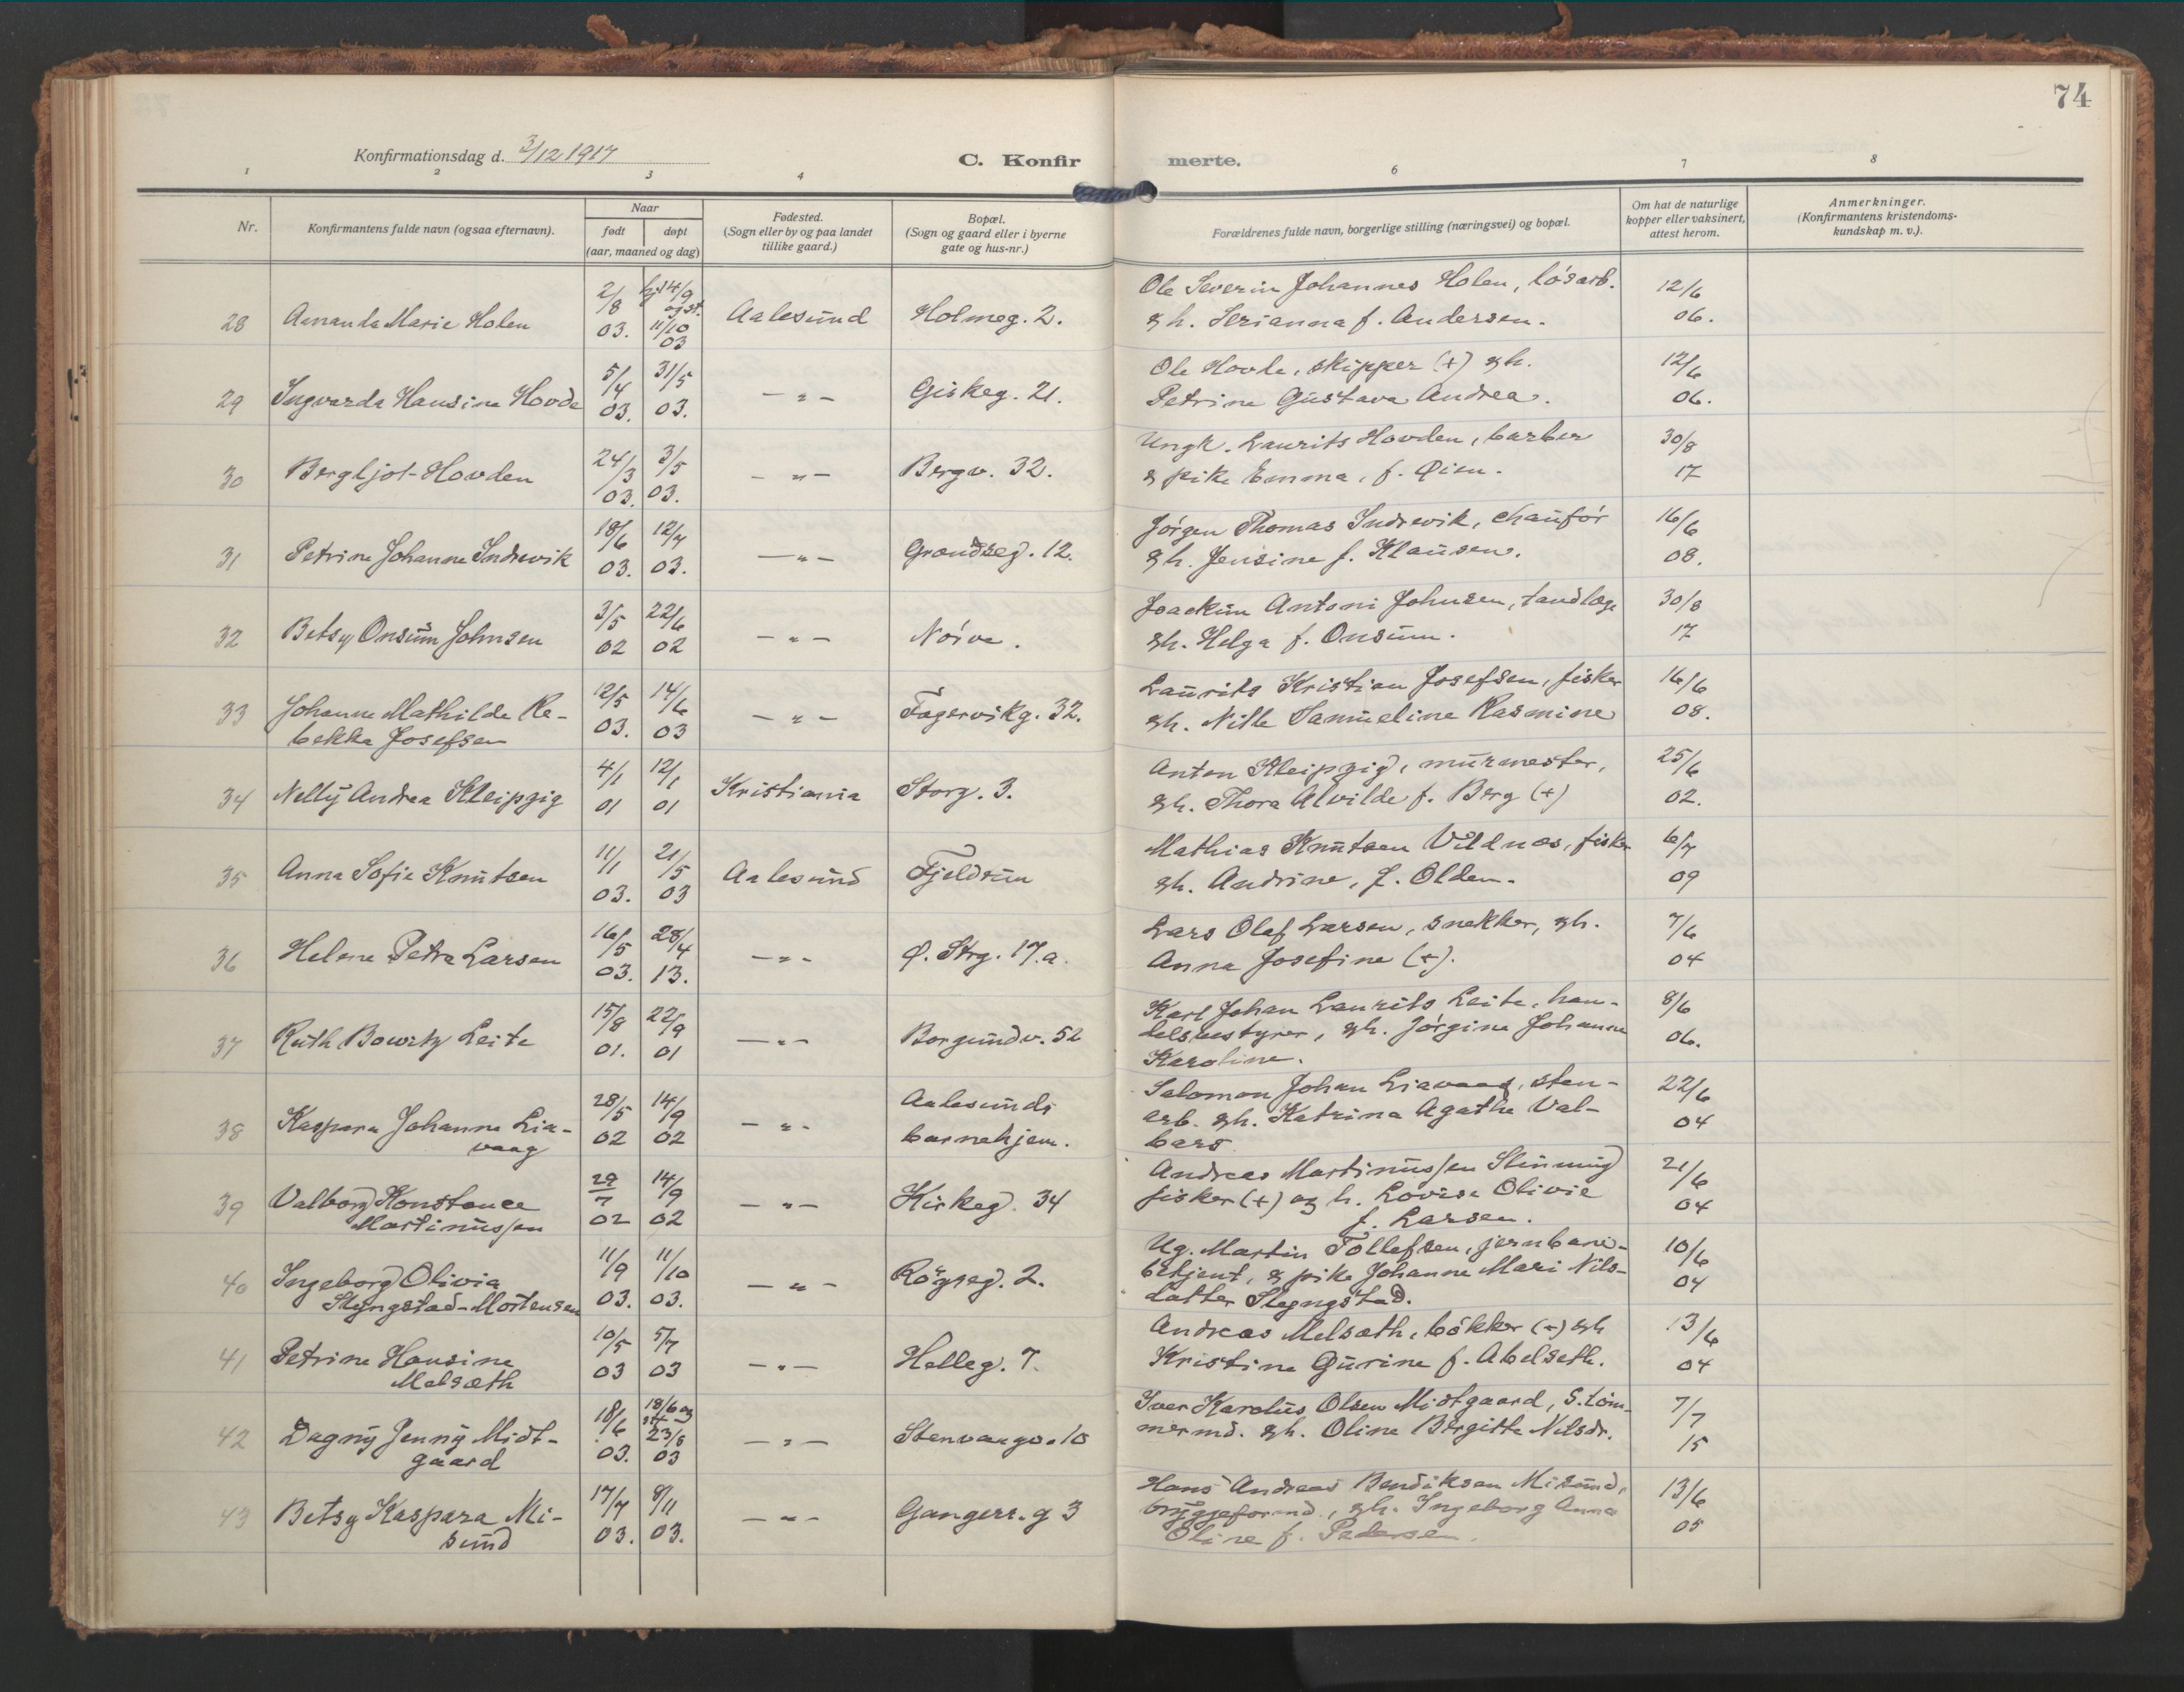 74
Konfirmationsdag d. 3/12 1917
C. Konfir merte.
1 2 3 4 6 7 8
Nr.
Konfirmantens fulde navn (ogsaa efternavn).
Naar
født
døpt
(aar, maaned og dag)
Fødested.
(Sogn eller by og paa landet
tillike gaard.)
Bopæl.
(Sogn og gaard eller i byerne
gate og hus-nr.)
Forældrenes fulde navn, borgerlige stilling (næringsvei) og bopæl.
Om hat de naturlige
kopper eller vaksinert,
attest herom.
Anmerkninger.
(Konfirmantens kristendoms-
kundskap m. v.).
28 Amanda Marie Holen 2/8 03. 14/9 11/10 03 Aalesund Holmeg. 2.
Ole Severin Johannes Holen, løsarb.
& h. Serianna f. Andersen.
12/6 06.
29 Ingvarda Hansine Hovde 5/4 03. 31/5 03. — " — Giskeg. 21.
Ole Hovde, skipper (+) & h.
Petrine Gustava Andrea.
12/6 06.
30 Bergljot Hovden 24/3 03. 3/5 03. — " — Bergv. 32.
Ungk. Laurits Hovden, barber
& pike Emma, f. Øien.
30/8 17
31 Petrine Johanne Indrevik 18/6 03. 12/7 03. — " — Grandseg. 12.
Jørgen Thomas Indrevik, chauför
& h. Jensine f. Klausen.
16/6 08.
32 Betsy Onsum Johnsen 3/5 02 22/6 02 — " — Nørve.
Joackim Antoni Johnsen, tandlæge
& h. Helga f. Onsum.
30/8 17
33 Johanne Mathilde Re-
bekka Josefsen 12/5 03. 14/6 03 — " — Fagervikg. 32.
Laurits Kristian Josefsen, fisker
& h. Nille Samueline Rasmine
16/6 08.
34 Nelly Andrea Kleipzig 4/1 01 12/1 01 Kristiania Storg. 3.
Anton Kleipzig, murmester,
& h. Thora Alvilde f. Berg (+)
25/6 02.
35 Anna Sofie Knutsen 11/1 03. 21/5 03 Aalesund Fjeldtun
Mathias Knutsen Vildnes, fisker
& h. Andrine, f. Olden.
6/7 09
36 Helene Petra Larsen 16/5 03. 28/4 13. — " — Ø. Strg. 17.a.
Lars Olaf Larsen, snekker, & h.
Anna Josefine (+).
7/6 04
37 Ruth Bowitz Leite 15/8 01. 22/9 01 — " — Borgundv. 52
Karl Johan Laurits Leite, han-
delsbestyrer, & h. Jørgine Johanne
Karoline.
8/6 06.
38 Kaspara Johanna Lia-
vaag 28/5 02 14/9 02 — " — Aalesunds
barnehjem.
Salomon Johan Liavaag, sten-
arb. & h. Katrina Agathe Val-
bars
22/6 04
39 Valborg Konstance
Martinussen 29/7 02 14/9 02 — " — Kirkeg. 34
Andreas Martinussen Slinning
fisker (+) og h. Lovise Olivie
f. Larsen.
21/6 04
40 Ingeborg Olivia
Slyngstad-Mortensen 11/9 03. 11/10 03. — " — Røyseg. 2.
Ug. Martin Tollefsen, jernbane-
betjent, & pike Johanne Mari Nils-
datter Slyngstad.
10/6 04
41 Petrine Hansine
Melsæth 10/5 03 5/7 03 — " — Helleg. 7.
Andreas Melsæth, bökker (+) & h
Kristine Gurine f. Abelseth.
13/6 04
42 Dagny Jenny Midt-
gaard 18/6 03. 18/6 og st. 23/8 03 — " — Stenvaagv. 10
Iver Karolus Olsen Midtgaard, S.töm-
mermd. & h. Oline Birgitte Nilsdr.
7/7 15
43 Betsy Kaspara Mi-
sund 17/7 03. 8/11 03. — " — Gangerr. g 3
Hans Andreas Bendiksen Misund,
bryggeformd., & h. Ingeborg Anna
Oline f. Pedersen.
13/6 05